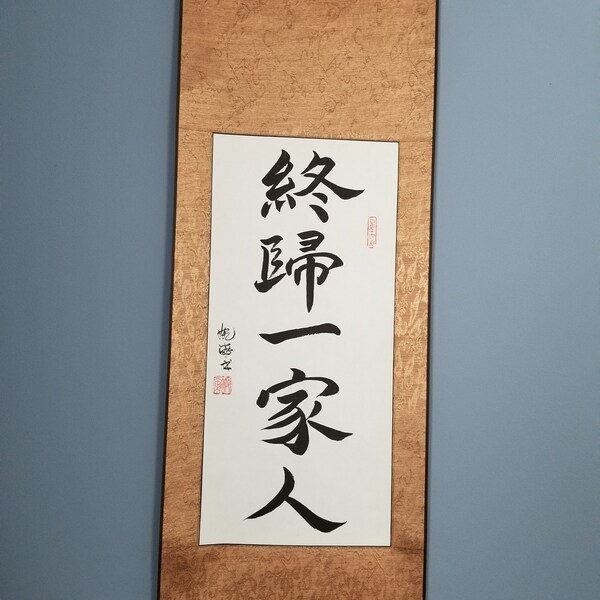 終歸一家人